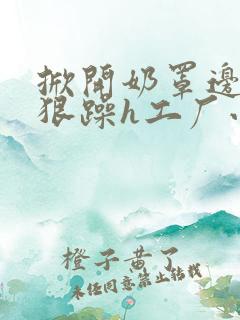 掀開奶罩邊
狠躁h工厂、
橙子黄了
未经同意禁止转载